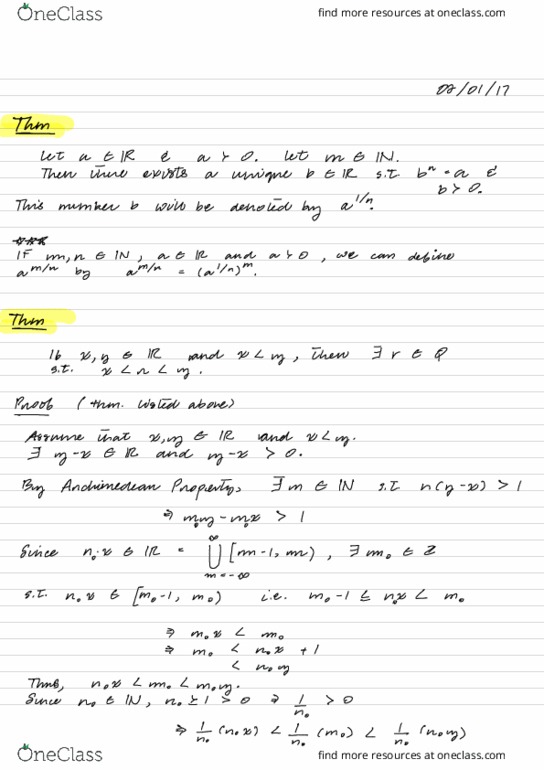 OneClass
find more resources at oneclass.com
02/01/17
Thm
Let a ∈ ℝ & a > 0. Let n ∈ ℕ.
Then there exists a unique b ∈ ℝ s.t. bⁿ = a &
b > 0.
This number b will be denoted by a^(1/n).
If m, n ∈ ℕ, a ∈ ℝ and a > 0, we can define
a^(m/n) by a^(m/n) = (a^(1/n))^m.
Thm
If x, y ∈ ℝ and x < y, then ∃ r ∈ Q
s.t. x < r < y.
Proof (thm. listed above)
Assume that x, y ∈ ℝ and x < y.
∃ y-x ∈ ℝ and y-x > 0.
By Archimedean Property, ∃ n ∈ ℕ s.t. n(y-x) > 1
⇒ n₀y - n₀x > 1
Since n₀·x ∈ ℝ = ∞ ⋃ m=-∞ [m-1, m), ∃ m₀ ∈ ℤ
s.t. n₀x ∈ [m₀-1, m₀) i.e. m₀-1 ≤ n₀x < m₀
⇒ n₀x < m₀
⇒ m₀ < n₀x + 1
< n₀y
Thus, n₀x < m₀ < n₀y.
Since n₀ ∈ ℕ, n₀ ≥ 1 > 0 ⇒ 1/n₀ > 0
⇒ 1/n₀ (n₀x) < 1/n₀ (m₀) < 1/n₀ (n₀y)
OneClass
find more resources at oneclass.com